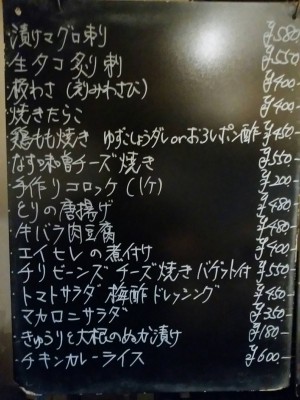 ・漬けマグロ刺 ¥580
・生タコ炙り刺 ¥550
・板わさ (刻みわさび) ¥400
・焼きたらこ ¥400
・鶏もも焼き ゆずこしょうダレorおろしポン酢 ¥450
・なす味噌チーズ焼き ¥550
・手作りコロッケ (1ケ) ¥200
・とりの唐揚げ ¥480
・牛バラ肉豆腐 ¥480
・エイヒレの煮付け ¥400
・チリビーンズ チーズ焼き バゲット付 ¥550
・トマトサラダ 梅酢ドレッシング ¥450
・マカロニサラダ ¥350
・きゅうりと大根のぬか漬け ¥180
・チキンカレーライス ¥600